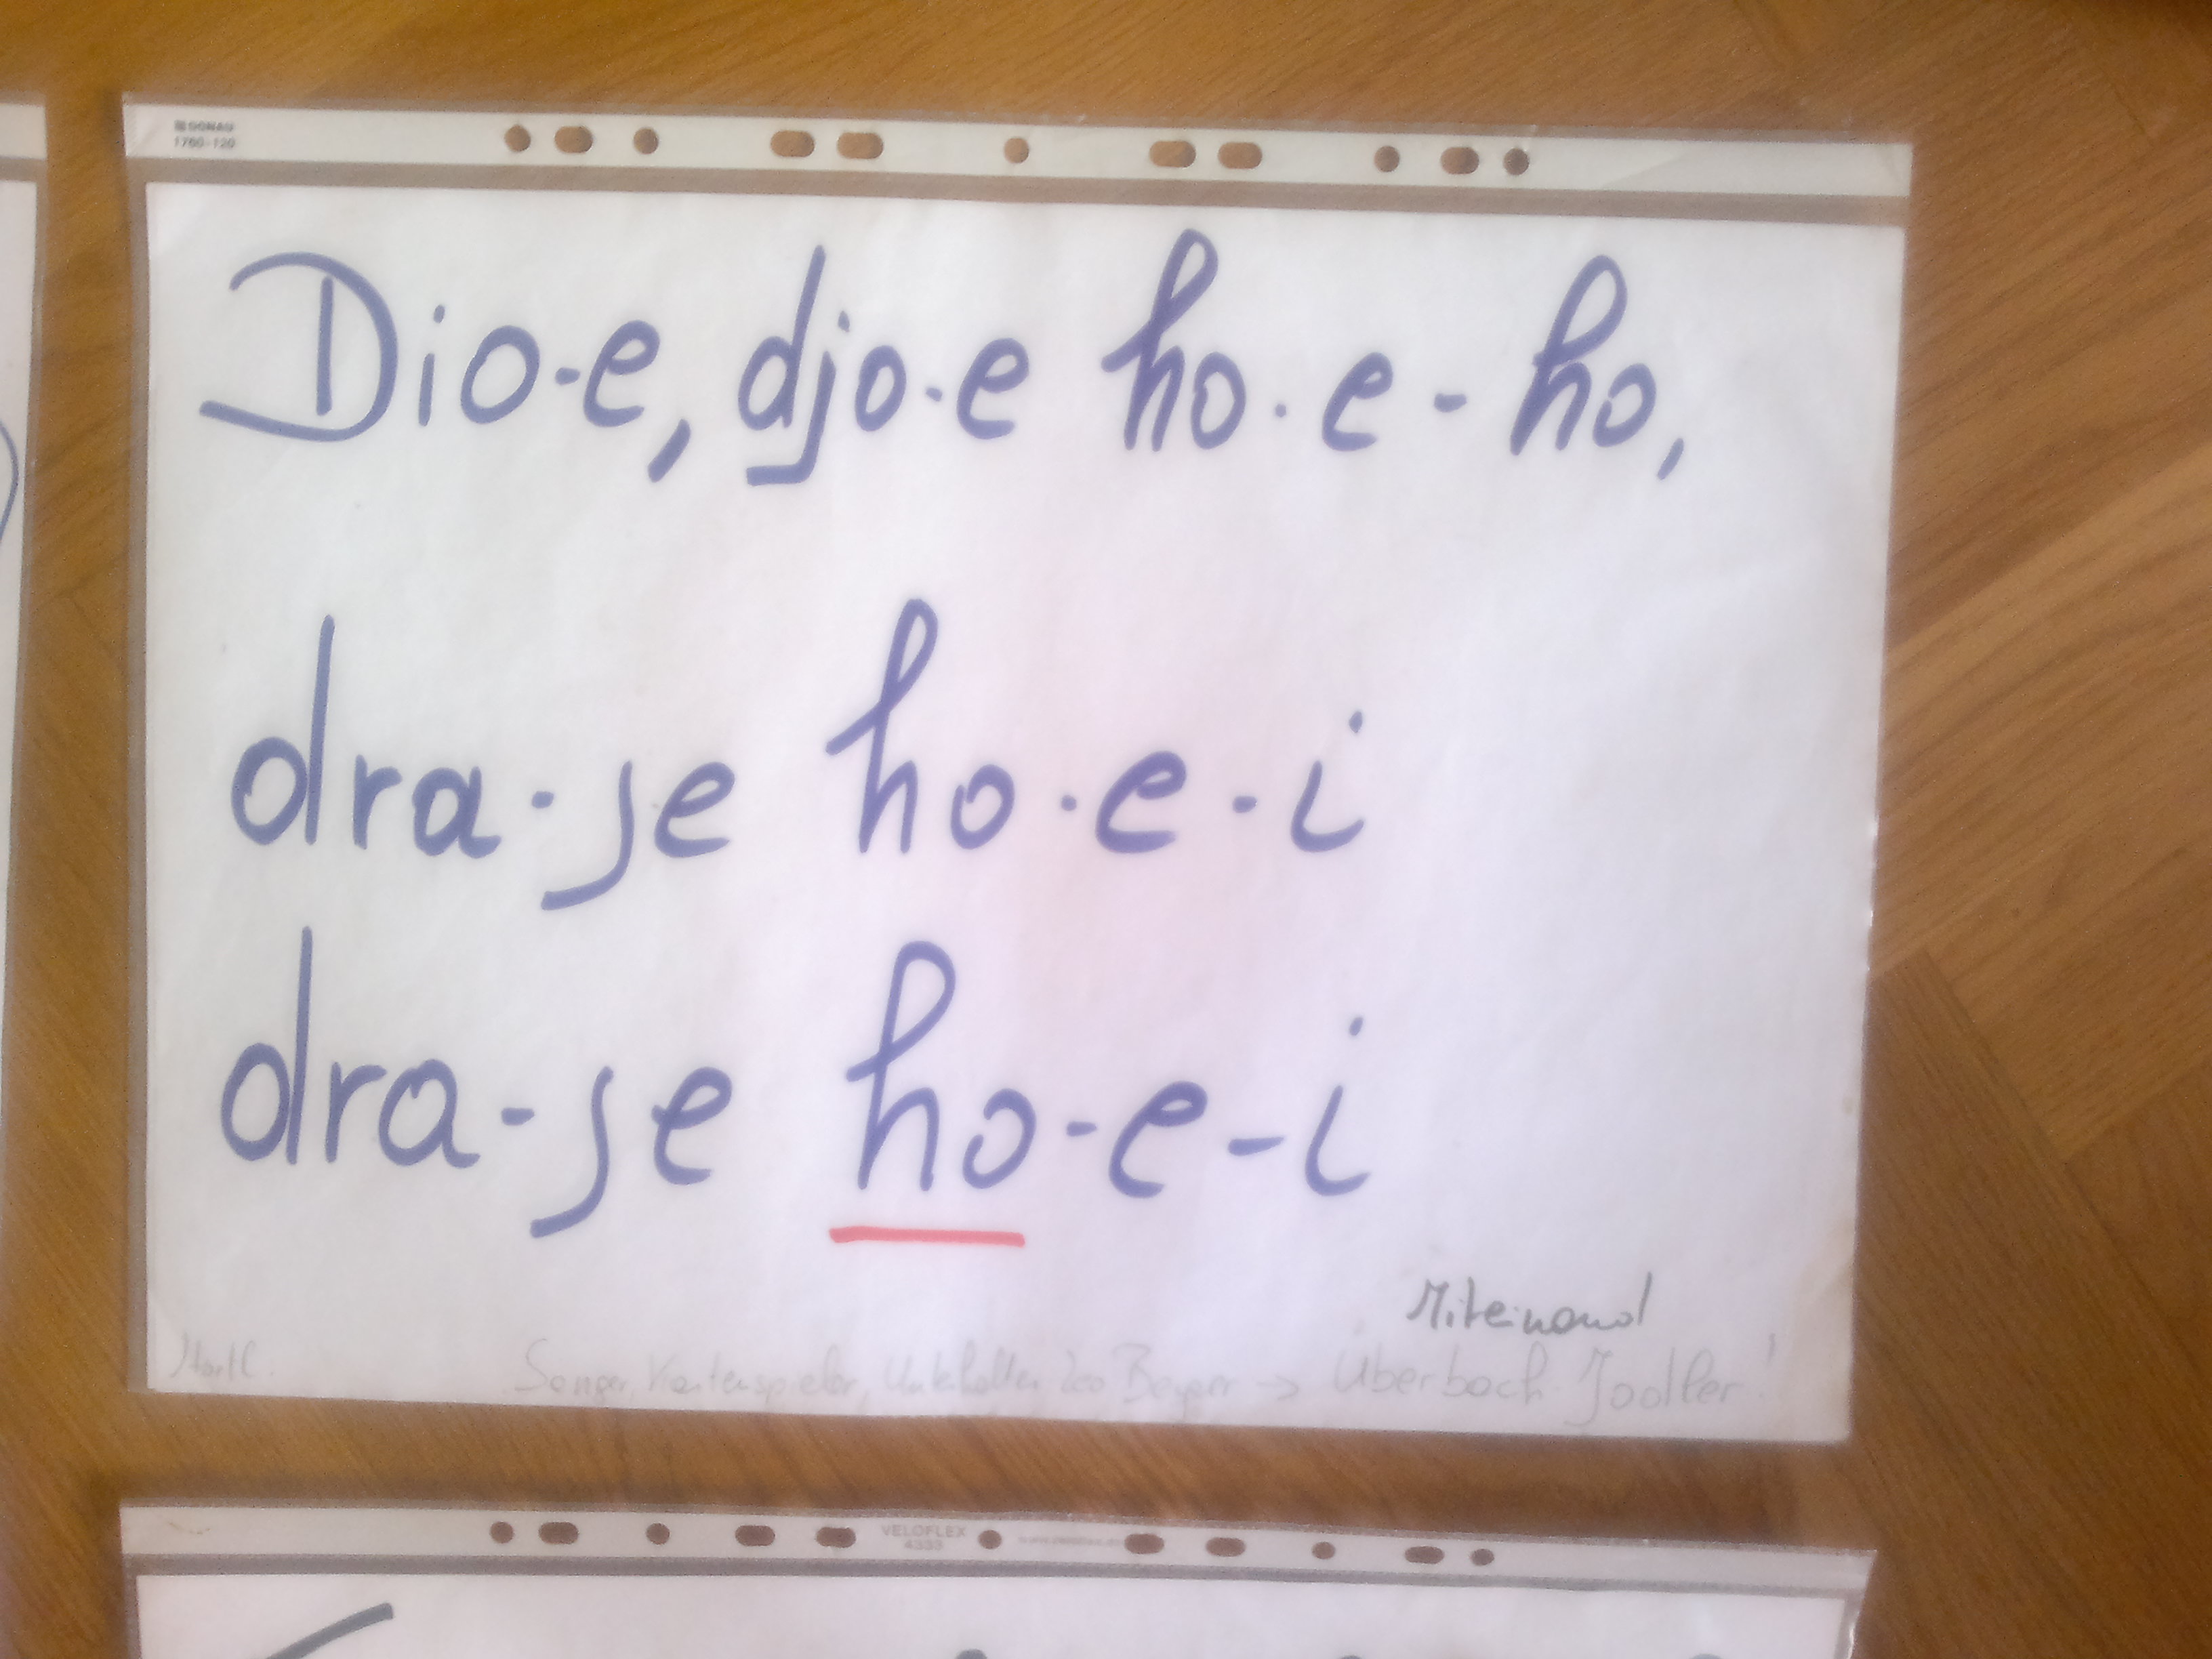 DONAU
1760-120
Dio-e, djo-e ho-e-ho,
dra-je ho-e-i
dra-je ho-e-i
Miteinand
Sänger, Kartenspieler, → Überbach Jodler!
VELOFLEX
4333